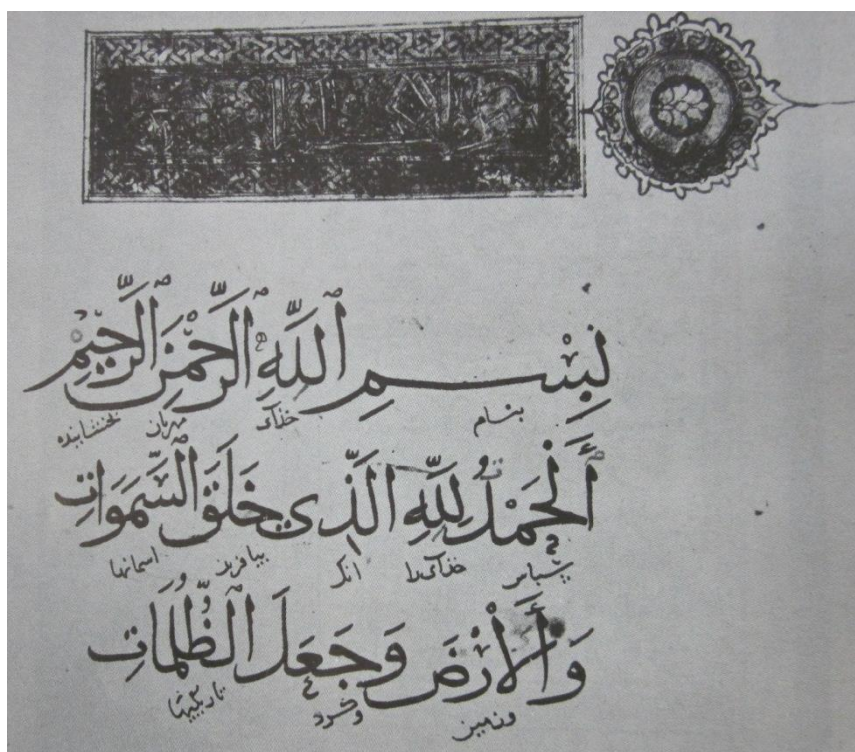 بِسْمِ اللَّهِ الرَّحْمَٰنِ الرَّحِيمِ
بنام خذای مهربان بخشاینده
أَلْحَمْدُ لِلَّهِ الَّذِي خَلَقَ السَّمَوَاتِ
سباس خذای را انک بیافرید اسمانها
وَالْأَرْضَ وَجَعَلَ الظُّلُمَاتِ
وزمین وکرد تاریکیها